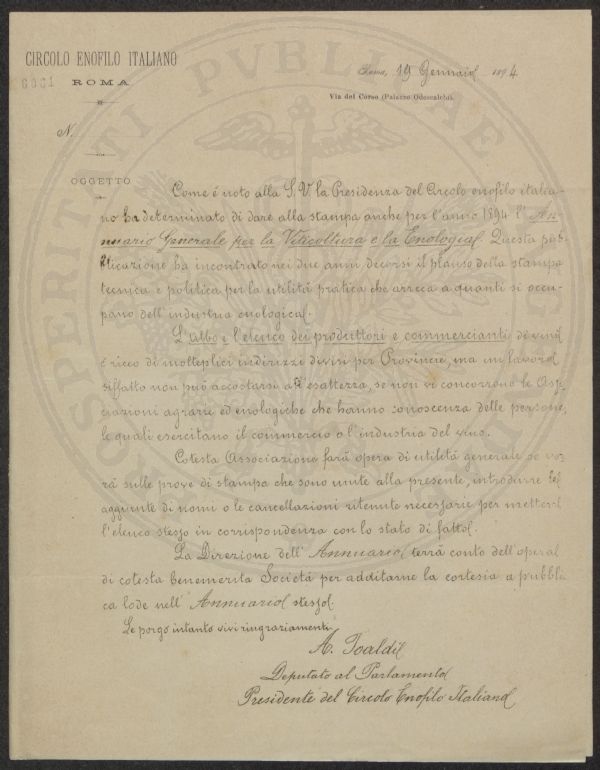 CIRCOLO ENOFILO ITALIANO
6001
ROMA
Roma, 19 Gennaio 1894.
Via del Corso (Palazzo Odescalchi).
N.
OGGETTO
Come é noto alla S. V. la Presidenza del Circolo enofilo italia-
no ha determinato di dare alla stampa anche per l'anno 1894 l'An-
nuario Generale per la Viticoltura e la Enologia. Questa pub-
blicazione ha incontrato nei due anni decorsi il plauso della stampa
tecnica e politica per la utilità pratica che arreca a quanti si occu-
pano dell'industria enologica.
L'albo e l'elenco dei produttori e commercianti di vino
é ricco di molteplici indirizzi divisi per Provincie, ma un lavoro
siffatto non può accostarsi all'esattezza, se non vi concorrono le Asso-
ciazioni agrarie ed enologiche che hanno conoscenza delle persone,
le quali esercitano il commercio o l'industria del vino.
Cotesta Associazione farà opera di utilità generale se vor-
rà sulle prove di stampa che sono unite alla presente, introdurre le
aggiunte di nomi o le cancellazioni ritenute necessarie per mettere
l'elenco stesso in corrispondenza con lo stato di fatto.
La Direzione dell'Annuario terrà conto dell'opera
di cotesta benemerita Società per additarne la cortesia a pubbli-
ca lode nell'Annuario stesso.
Le porgo intanto vivi ringraziamenti
A. Toaldi
Deputato al Parlamento
Presidente del Circolo Enofilo Italiano
PROSPERITATI PVBLICAE